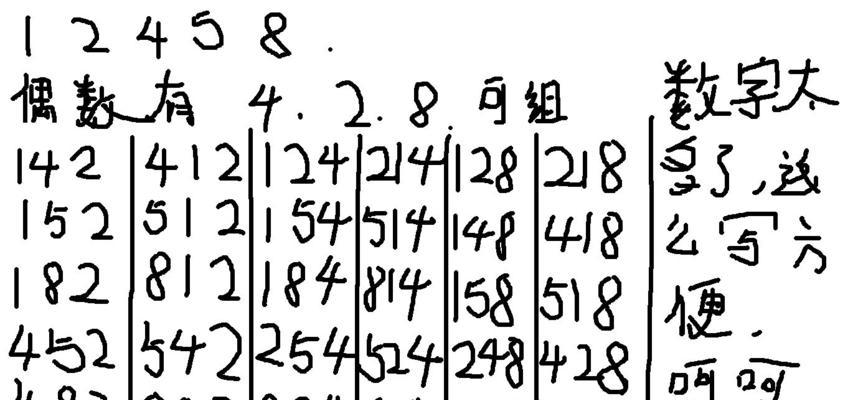 1 2 4 5 8 .
偶数有 4. 2. 8. 可组
142 412 124 214 128 218
152 512 154 514 148 418
182 812 184 814 158 518
452 542 254 524 248 428
数字太
多了,这
么写方
便.
呵呵